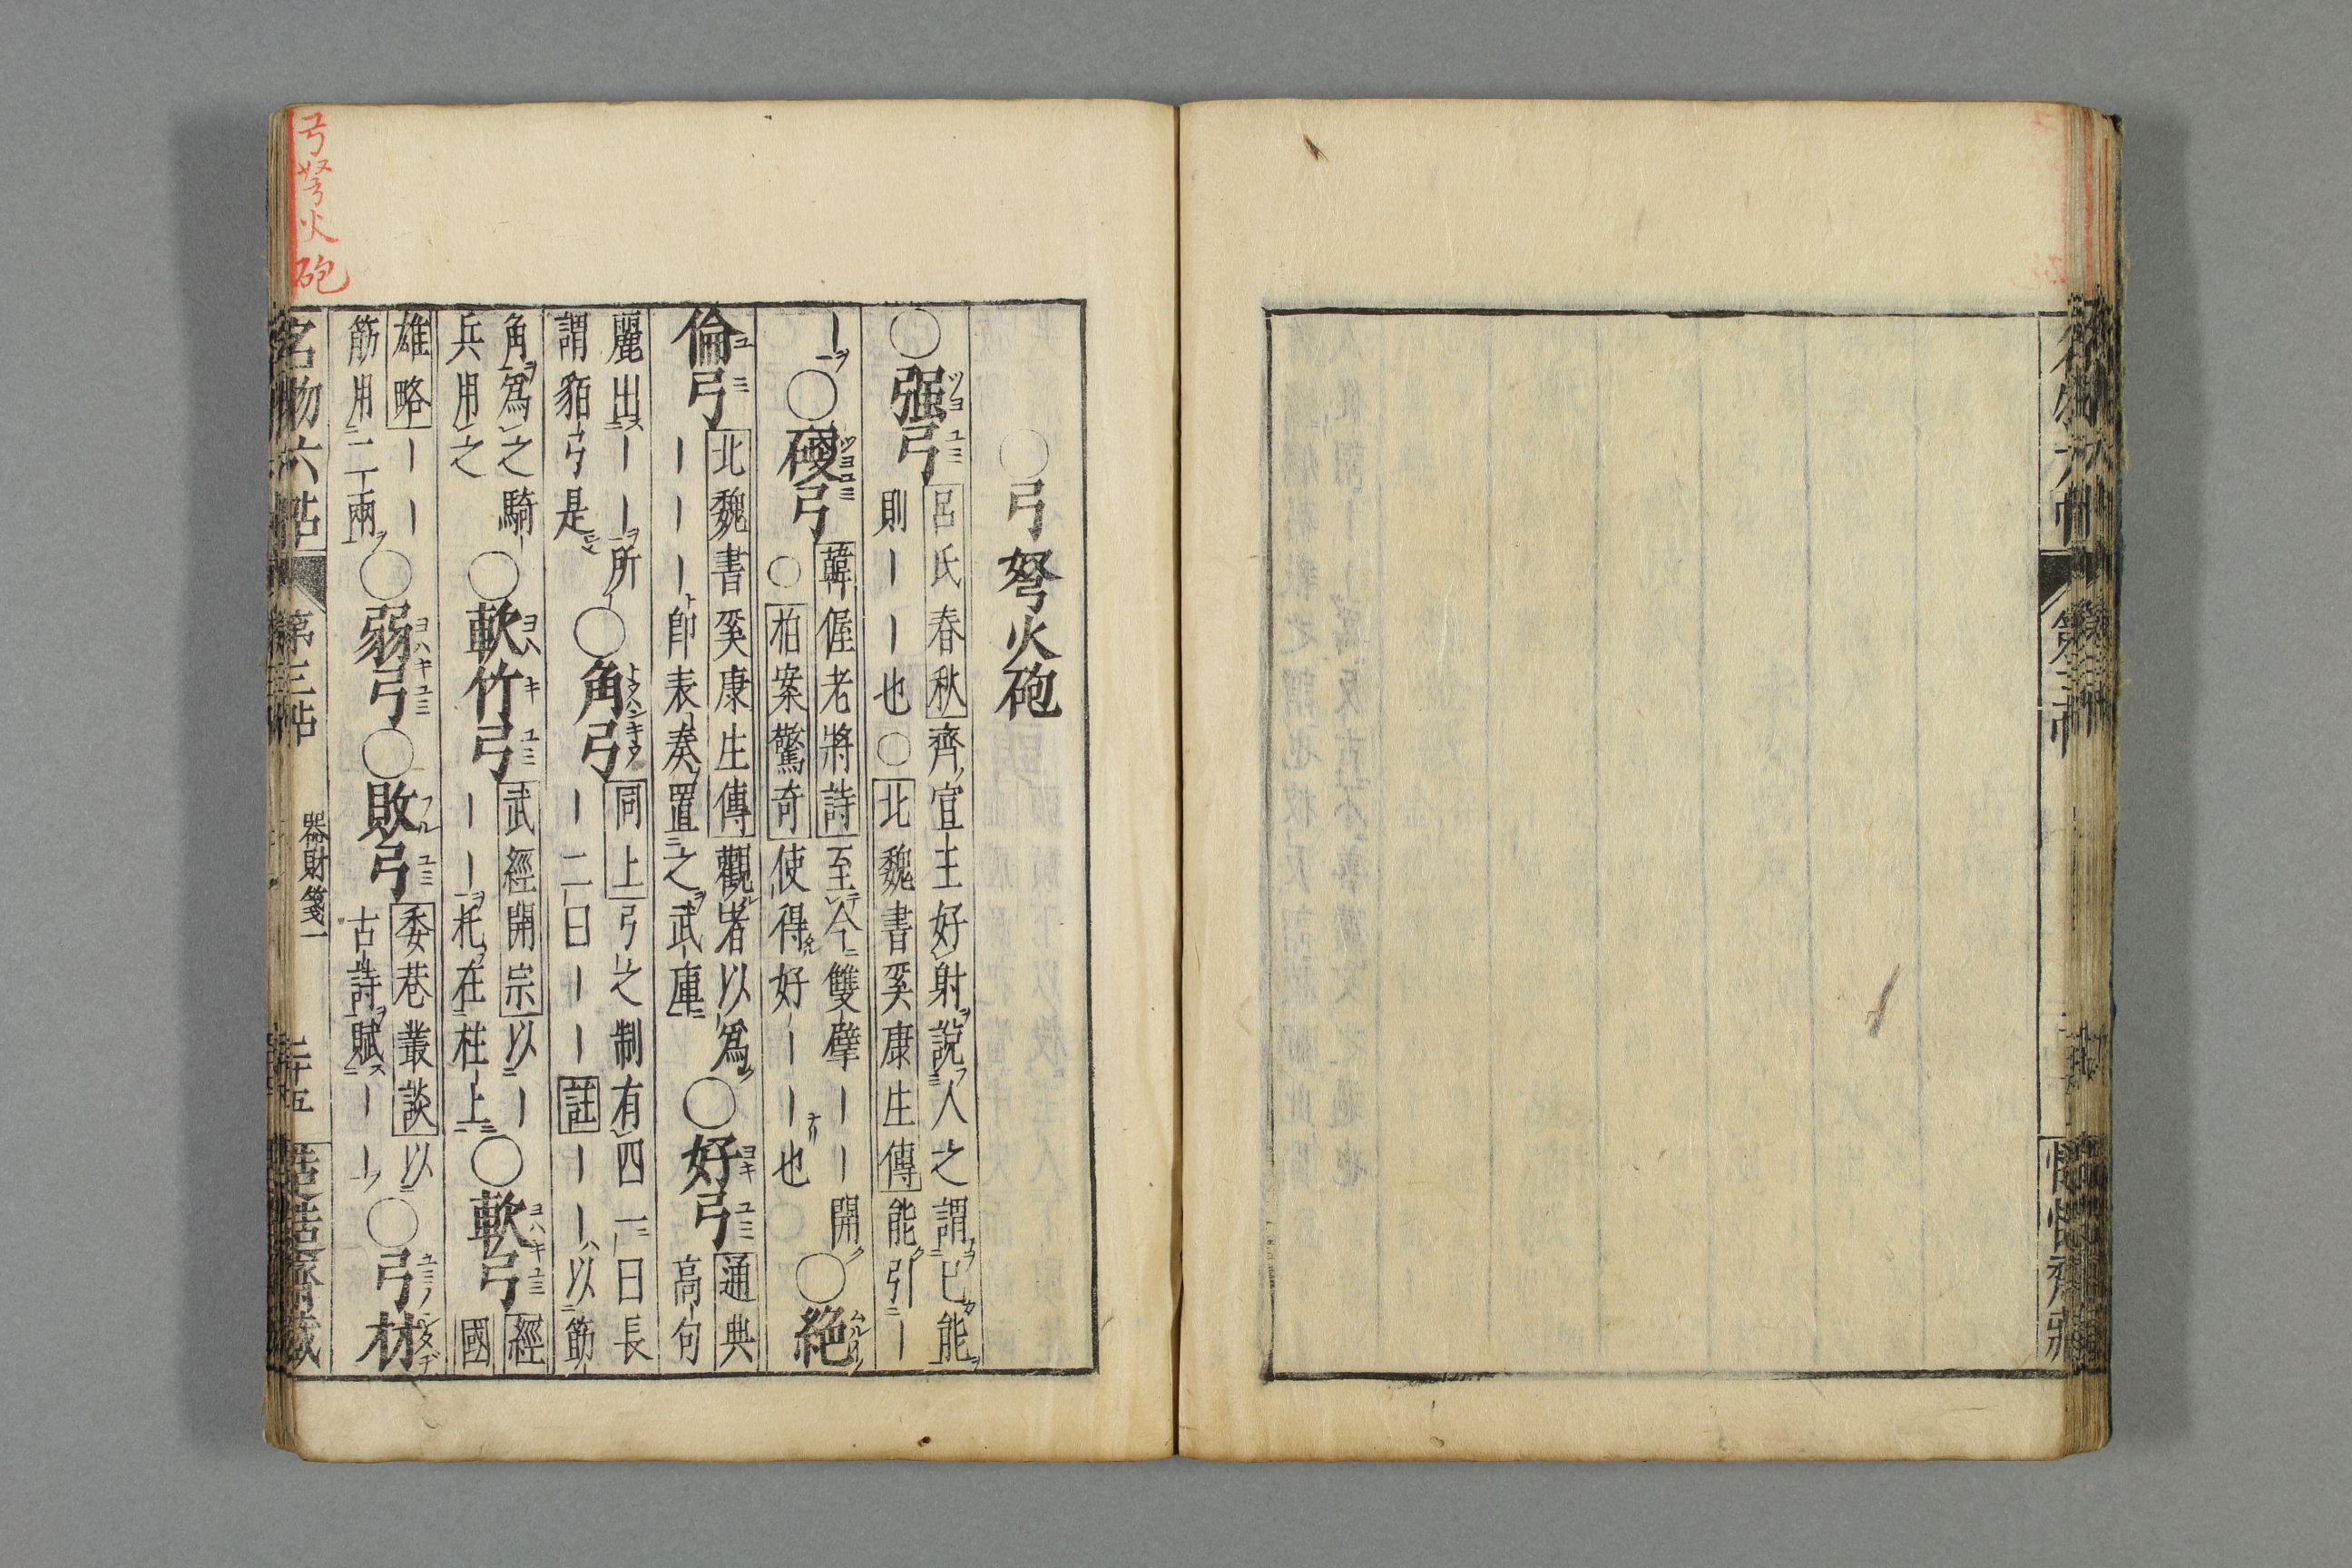 ○弓弩火砲
○强弓 呂氏春秋齊宣王好射說人之謂已能
則｜｜也○北魏書奚康生傳能引｜
｜○硬弓 韓偓老將詩至今雙擘｜｜開○絶
○柏案驚奇使得好｜｜也
倫弓 北魏書奚康生傳觀者以爲○好弓 通典
｜｜｜卽表奏置之武庫 高句
麗出｜｜所○角弓 同上弓之制有四一曰長
謂貊弓是 ｜二曰｜｜註｜｜以筋
角爲之騎○軟竹弓 武經開宗以｜○軟弓 經
兵用之 ｜｜托在柱上 國
雄略｜｜○弱弓○敗弓 委巷叢談以○弓材
筋用二兩 古詩賦｜｜
名物六帖 第三帖 器財箋一 二十五 恬恬齋藏
弓弩火砲